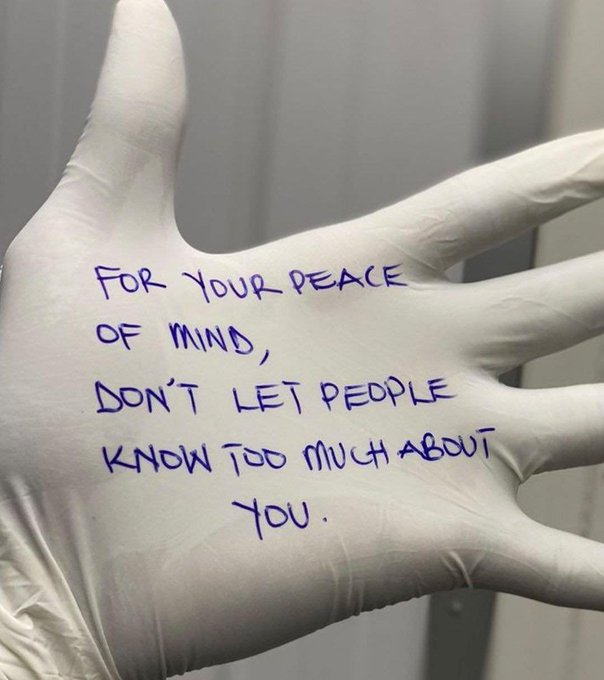 FOR YOUR PEACE
OF MIND,
DON'T LET PEOPLE
KNOW TOO MUCH ABOUT
YOU.